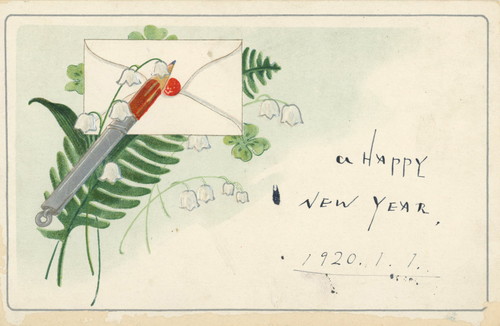 a HAPPY
NEW YEAR.
1920.1.1.